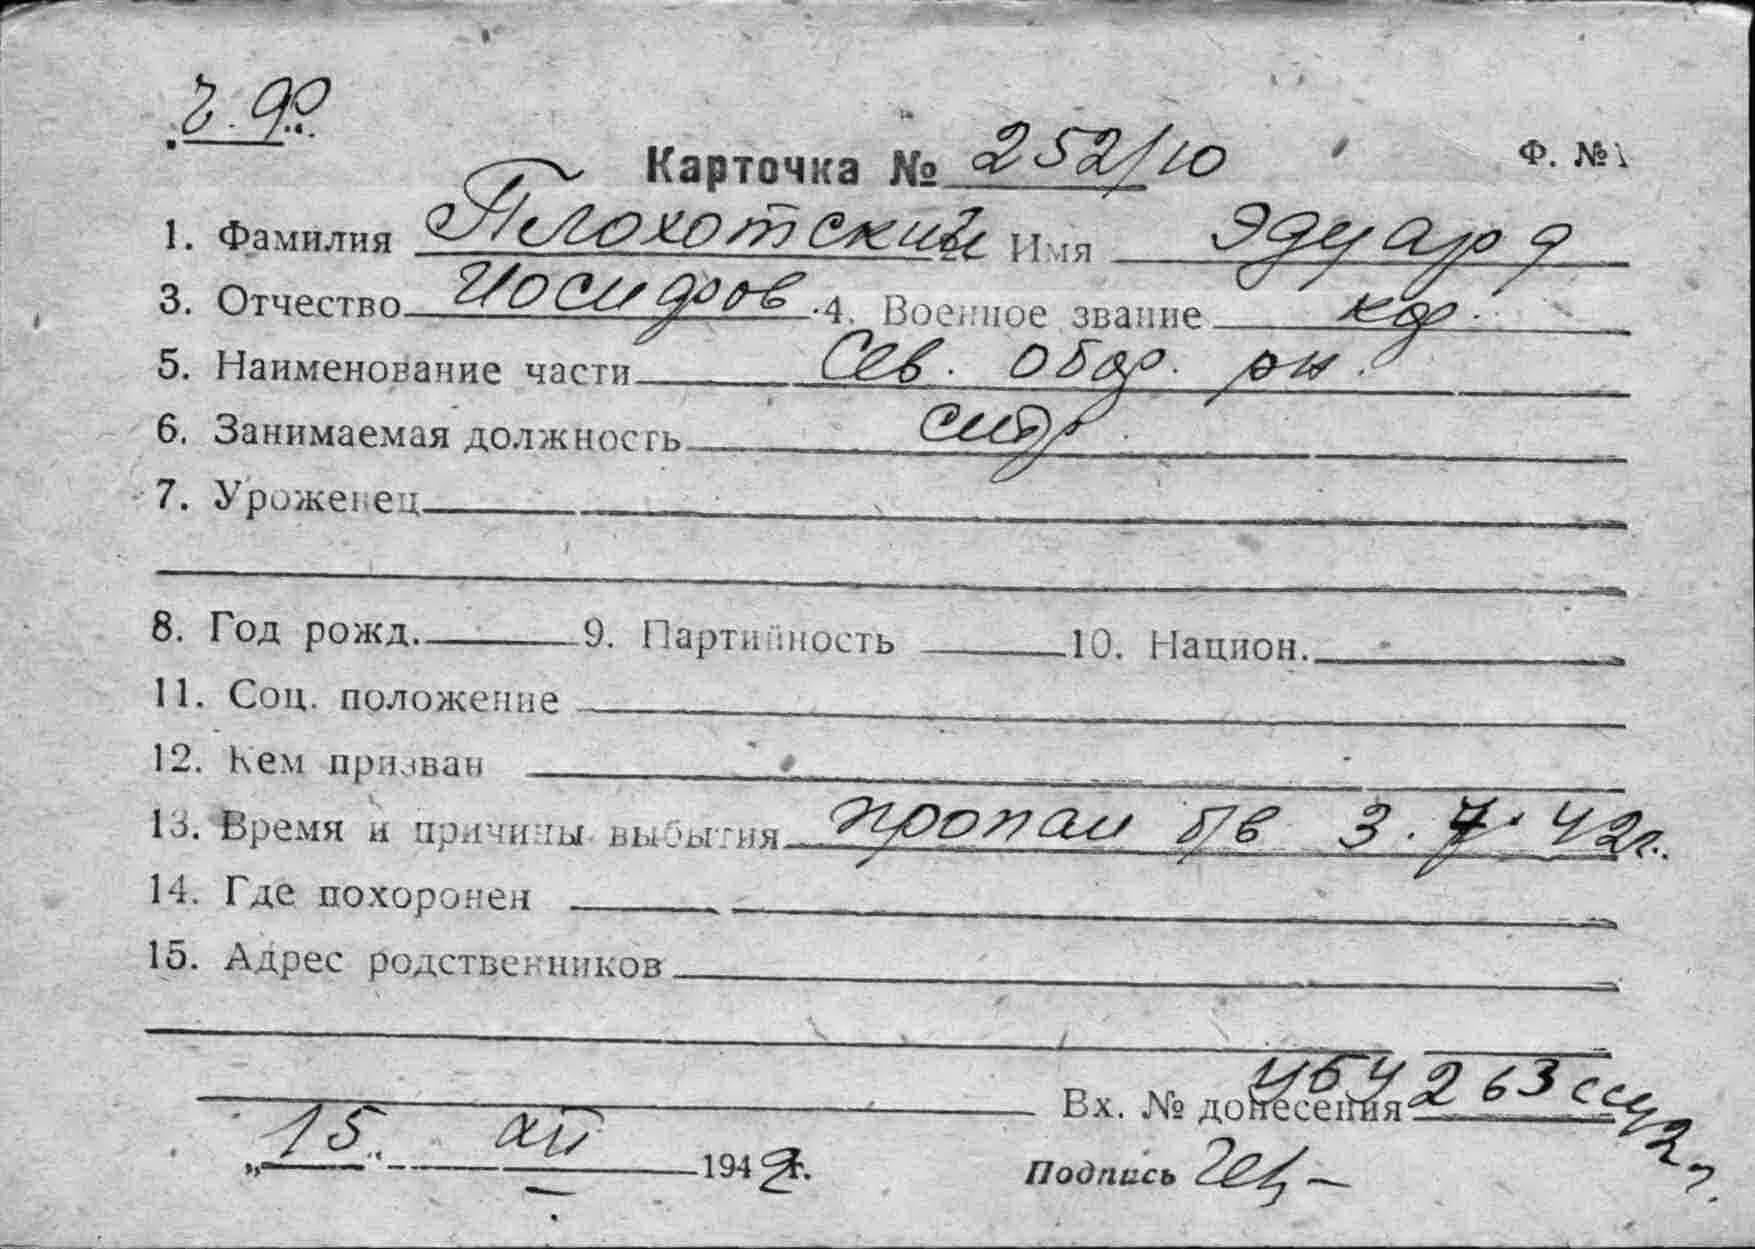 ч. ф.
Карточка № 252/10 Ф. №1
1. Фамилия Плохотский Имя Эдуард
3. Отчество Иосифов. 4. Военное звание кф.
5. Наименование части Сев. обор. рн.
6. Занимаемая должность
7. Уроженец
8. Год рожд. 9. Партийность 10. Национ.
11. Соц. положение
12. Кем призван
13. Время и причины выбытия пропал б/в 3.7.42г.
14. Где похоронен
15. Адрес родственников
Вх. № донесения 263
„15“ XII 1942г. Подпись